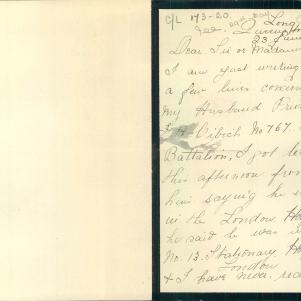 C/L 173-20.
Long
Dear Sir or Madam
I am just writing
a few lines concer
my Husband Priv
Cibich No 767.
Battalion, I got le
this afternoon from
him saying he
in the London
he said he was
No. 13. Stationary H
London
& I have never rec